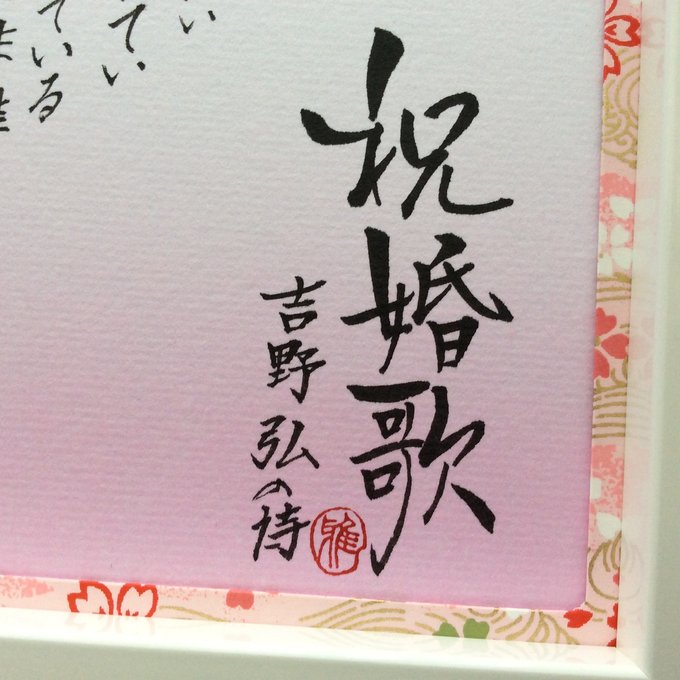 祝婚歌
吉野弘の詩
雅
い
てい
ている